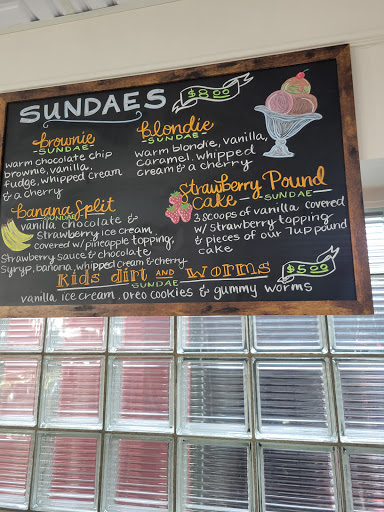 SUNDAES $8.00
brownie
-SUNDAE-
warm chocolate chip
brownie, vanilla,
fudge, whipped cream
& a cherry
blondie
-SUNDAE-
warm blondie, vanilla,
caramel, whipped
cream & a cherry
banana split
SUNDAE
vanilla chocolate &
Strawberry ice cream,
covered w/ pineapple topping,
Strawberry sauce & chocolate
Syryp, banana, whipped cream & cherry
Strawberry Pound
Cake -SUNDAE-
3 scoops of vanilla covered
w/ Strawberry topping
& pieces of our 7up pound
cake
Kids dirt AND worms $5.00
SUNDAE
vanilla ice cream, oreo cookies & gummy worms